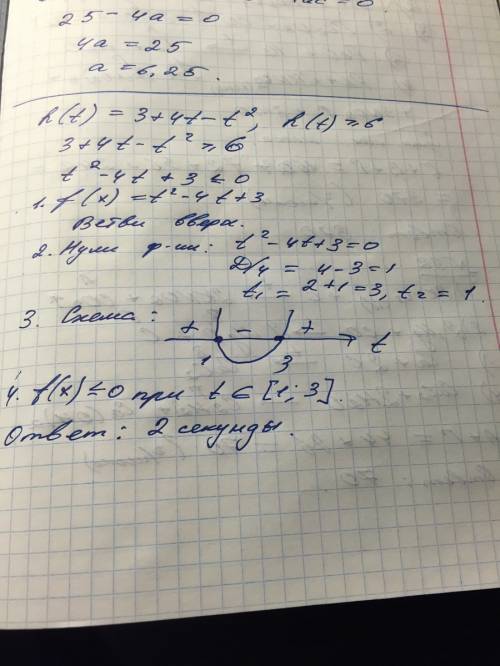 ac = 0
25 - 4a = 0
4a = 25
a = 6,25.
h(t) = 3+4t-t², h(t) ≥ 6
3+4t-t² ≥ 6
t²-4t+3 ≤ 0
1. f(x) = t²-4t+3
Ветви вверх.
2. Нули ф-ии: t²-4t+3=0
D/4 = 4-3=1
t₁ = 2+1=3, t₂ = 1.
3. Схема:
+ - +
1 3 t
4. f(x) ≤ 0 при t ∈ [1; 3].
Ответ: 2 секунды.